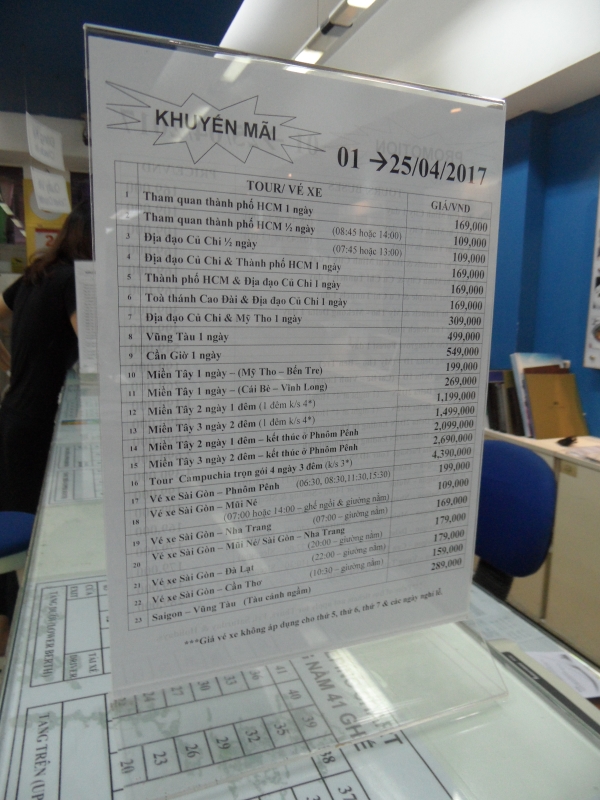 KHUYẾN MÃI
01 →25/04/2017
TOUR/ VÉ XE GIÁ/VND
1 Tham quan thành phố HCM 1 ngày 169,000
Tham quan thành phố HCM ½ ngày (08:45 hoặc 14:00) 109,000
3 Địa đạo Củ Chi ½ ngày (07:45 hoặc 13:00) 109,000
4 Địa đạo Củ Chi & Thành phố HCM 1 ngày 169,000
5 Thành phố HCM & Địa đạo Củ Chi 1 ngày 169,000
6 Toà thánh Cao Đài & Địa đạo Củ Chi 1 ngày 169,000
7 Địa đạo Củ Chi & Mỹ Tho 1 ngày 309,000
8 Vũng Tàu 1 ngày 499,000
9 Cần Giờ 1 ngày 549,000
10 Miền Tây 1 ngày – (Mỹ Tho – Bến Tre) 199,000
11 Miền Tây 1 ngày – (Cái Bè – Vĩnh Long) 269,000
12 Miền Tây 2 ngày 1 đêm (1 đêm k/s 4*) 1,199,000
13 Miền Tây 3 ngày 2 đêm (1 đêm k/s 4*) 1,499,000
14 Miền Tây 2 ngày 1 đêm – kết thúc ở Phnôm Pênh 2,099,000
15 Miền Tây 3 ngày 2 đêm – kết thúc ở Phnôm Pênh 2,690,000
16 Tour Campuchia trọn gói 4 ngày 3 đêm (k/s 3*) 4,390,000
17 Vé xe Sài Gòn – Phnôm Pênh (06:30, 08:30,11:30,15:30) 199,000
18 Vé xe Sài Gòn – Mũi Né 109,000
(07:00 hoặc 14:00 – ghế ngồi & giường nằm)
19 Vé xe Sài Gòn – Nha Trang (07:00 – giường nằm) 169,000
20 Vé xe Sài Gòn – Mũi Né/ Sài Gòn – Nha Trang 179,000
(20:00 – giường nằm)
21 Vé xe Sài Gòn – Đà Lạt (22:00 – giường nằm) 179,000
22 Vé xe Sài Gòn – Cần Thơ (10:30 – giường nằm) 159,000
23 Saigon – Vũng Tàu (Tàu cánh ngầm) 289,000
***Giá vé xe không áp dụng cho thứ 5, thứ 6, thứ 7 & các ngày nghỉ lễ.
NẰM 41 GHẾ
TẦNG TRÊN (UP
TÀI XẾ
DRIVER
(LOWER BERTH)
20
23
26
29
32
35
38
37